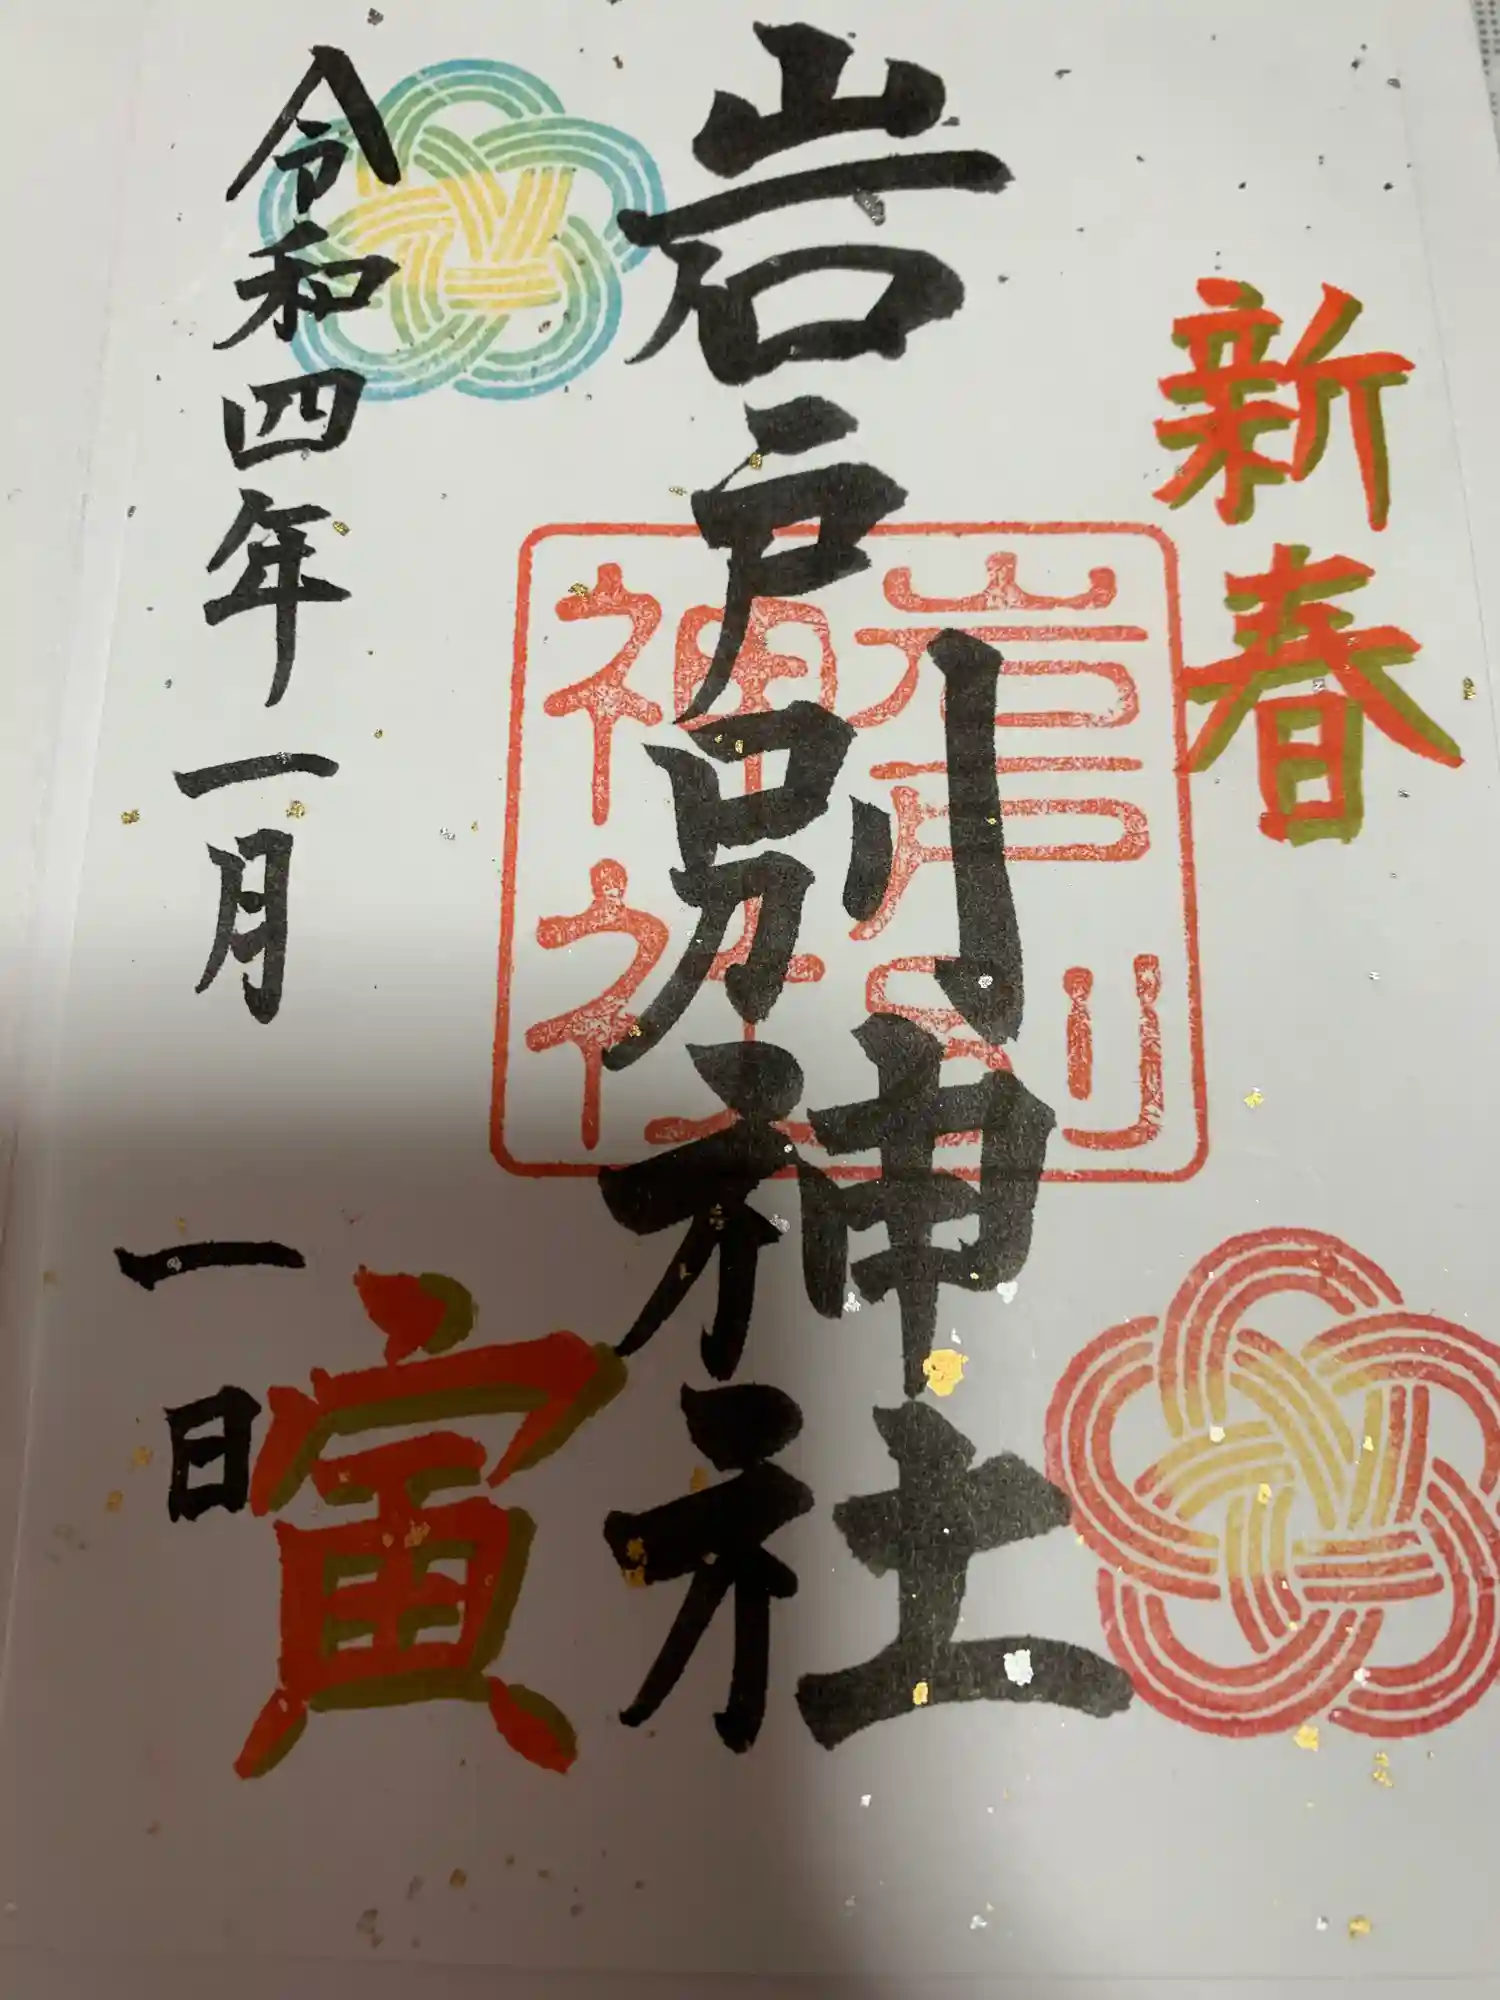 新春
岩戸別神社
岩戸別
神社
令和四年一月一日
寅